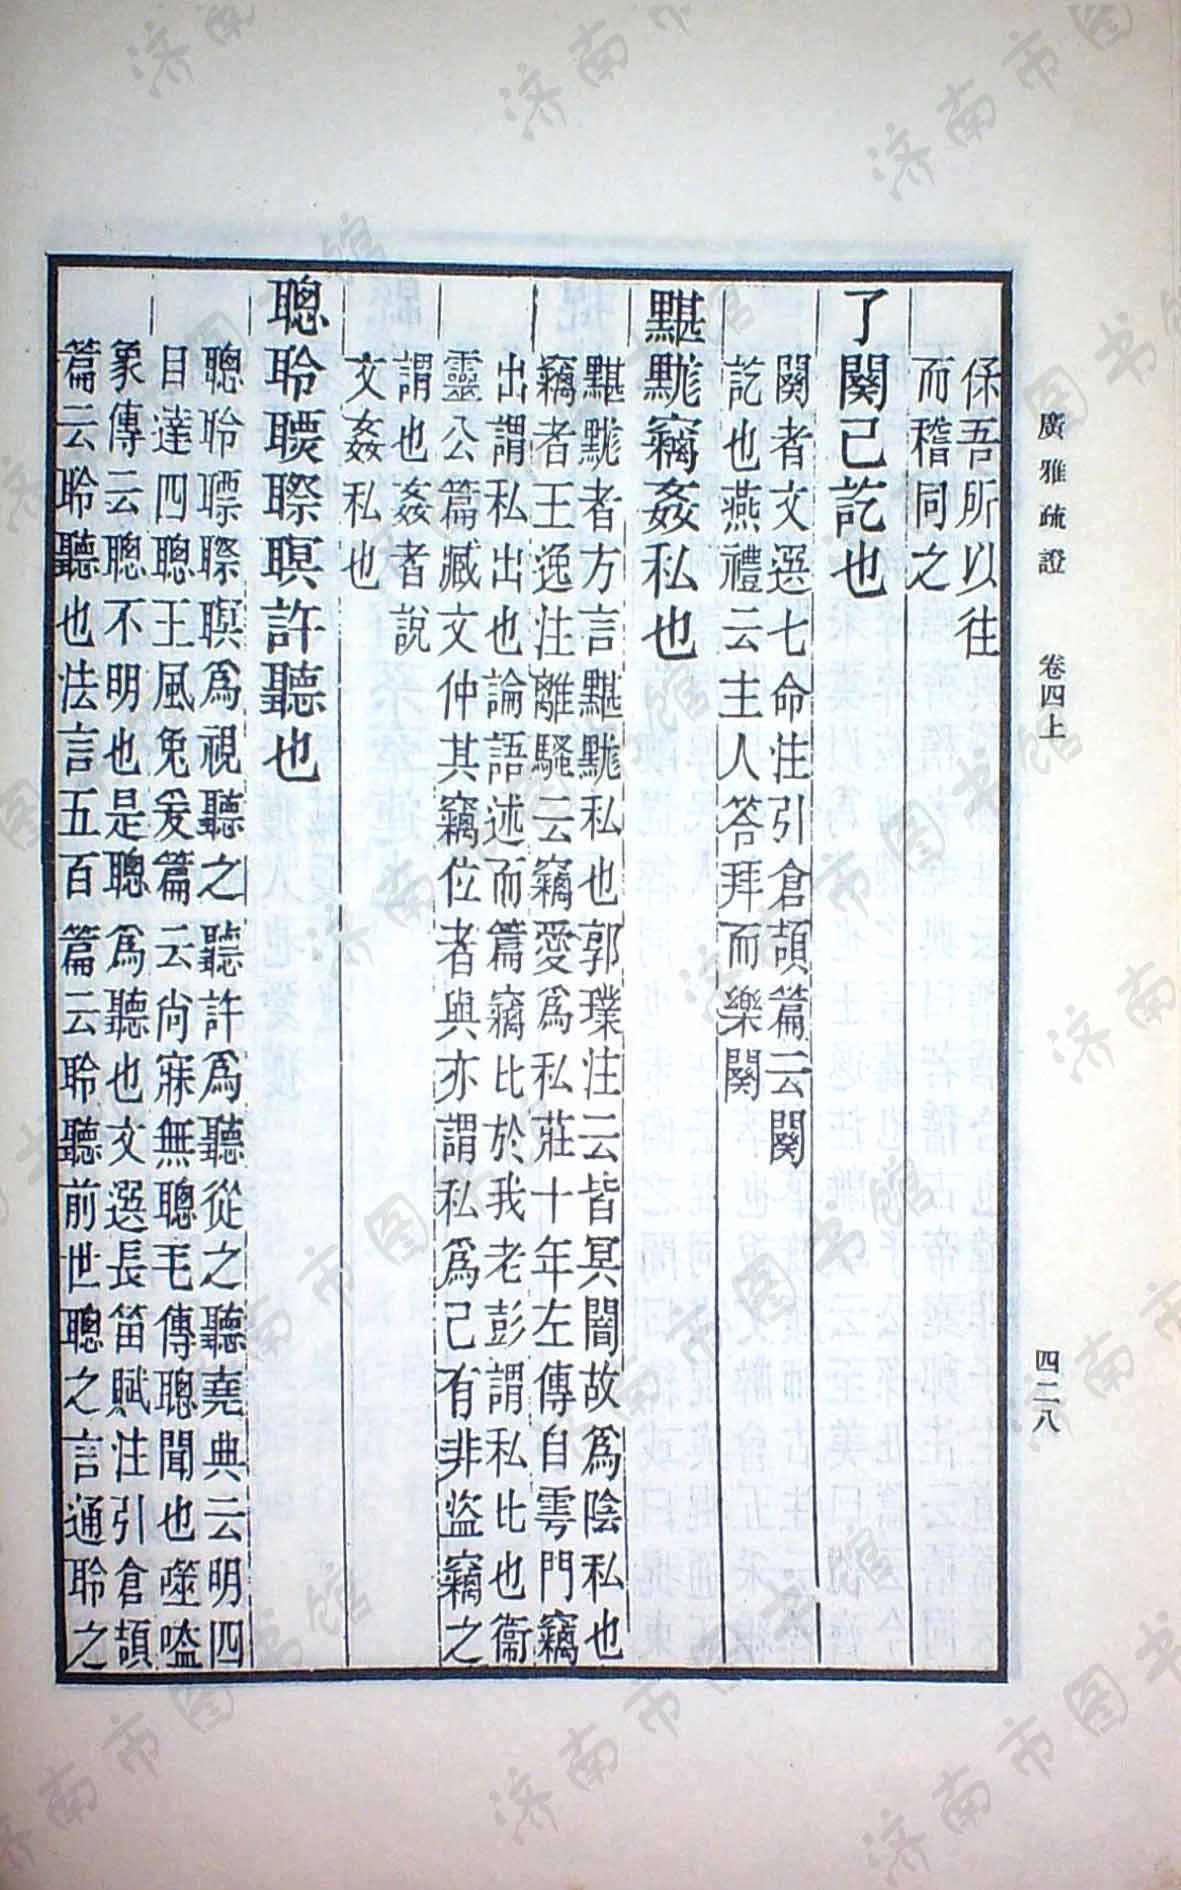 廣雅疏證　卷四上　四二八
保吾所以往
而稽同之
了闋已訖也
闋者文選七命注引倉頡篇云闋
訖也燕禮云主人答拜而樂闋
黮黱竊姦私也
郭璞注云皆冥闇故爲陰私也
竊者王逸注離騷云竊愛爲私莊十年左傳自雩門竊
出謂私出也論語述而篇竊比於我老彭謂私比也衞
靈公篇臧文仲其竊位者與亦謂私爲己有非盜竊之
謂也姦者說
文姦私也
聰聆聽也
爲視聽之聽許爲聽從之聽堯典云明四
目達四聰王風兔爰篇云尙寐無聰毛傳聰聞也噬嗑
象傳云聰不明也是聰爲聽也文選長笛賦注引倉頡
篇云聆聽也法言五百篇云聆聽前世聰之言通聆之